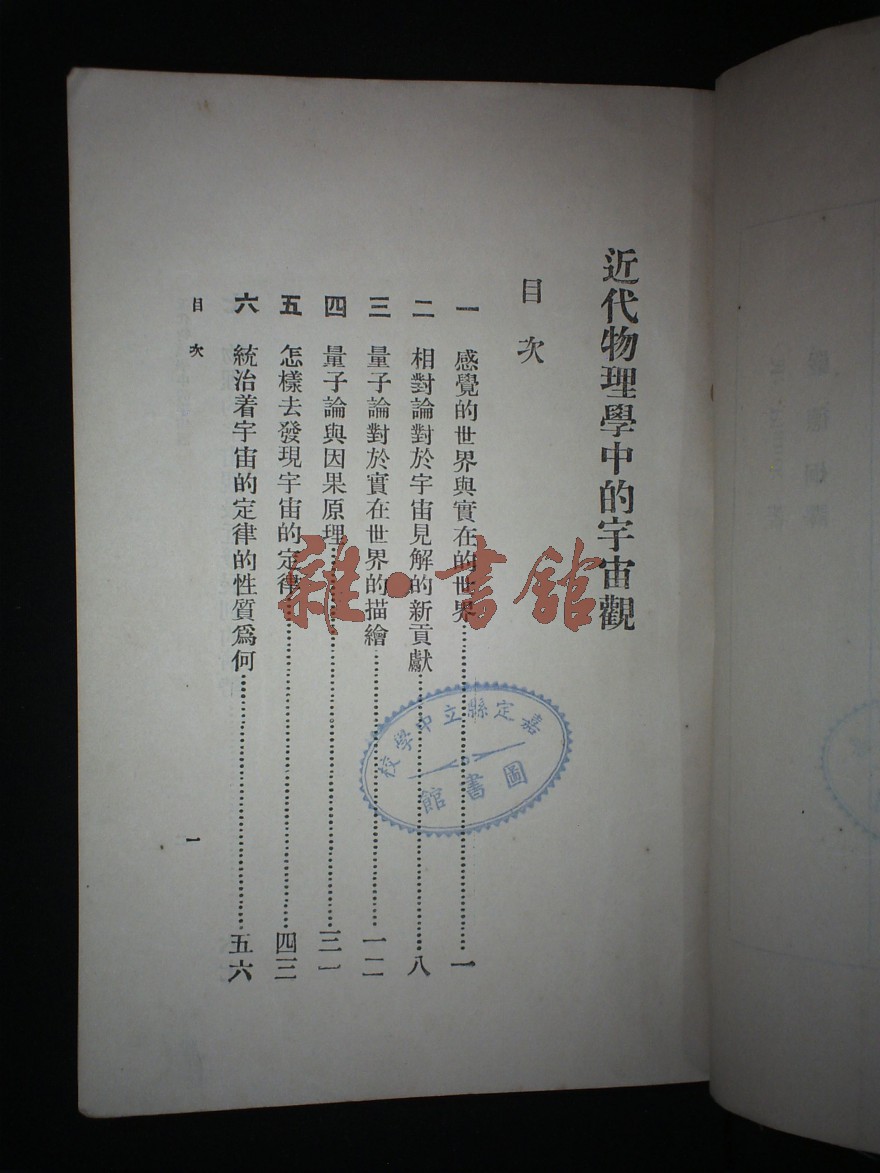 近代物理學中的宇宙觀
目次
一 感覺的世界與實在的世界……一
二 相對論對於宇宙見解的新貢獻……八
三 量子論對於實在世界的描繪……一二
四 量子論與因果原理……三一
五 怎樣去發現宇宙的定律……四三
六 統治着宇宙的定律的性質爲何……五六
目次
一
雜·書館
嘉定縣立中學校
圖書館